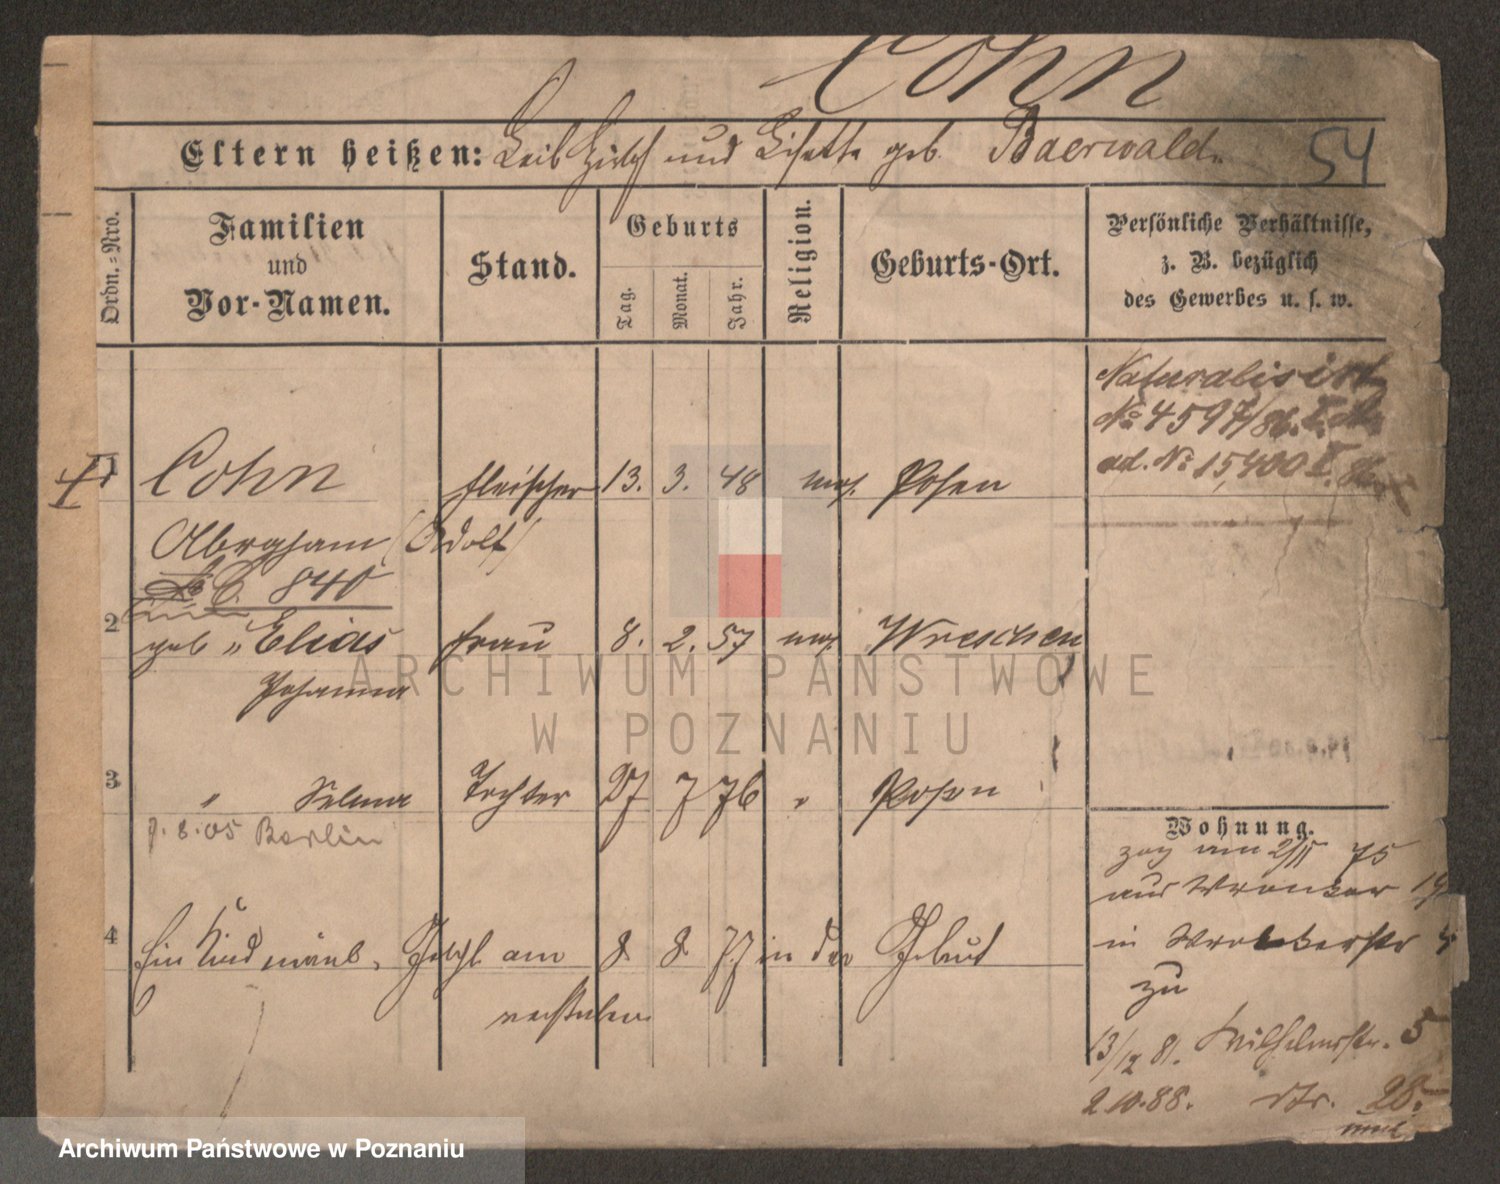 Cohn
Eltern heißen: Leib Hirsch und Lisette geb. Baerwald.
54
Ordn.-Nro.
Familien
und
Vor-Namen.
Stand.
Geburts
Tag.
Monat.
Jahr.
Religion.
Geburts-Ort.
Persönliche Verhältnisse,
z. B. bezüglich
des Gewerbes u. s. w.
Naturalisirt
No 4597/86. I.
ad. No 15,400 I.
1 Cohn Fleischer 13. 3. 48 mos. Posen
Abraham (Adolf)
840
2 geb. Elias Frau 8. 2. 57 mos. Wreschen
Johanna
3 " Selma Tochter 27 7 76 " Posen
8.05 Berlin
4 Ein Kind männl. am 8 8 77 in der Geburt
verstorben
Wohnung.
zog am 2/11 75
aus Wronker
in
zu
13/12 81. Wilhelmstr. 5
2.10.88. dto. 28.
ARCHIWUM PAŃSTWOWE
W POZNANIU
Archiwum Państwowe w Poznaniu